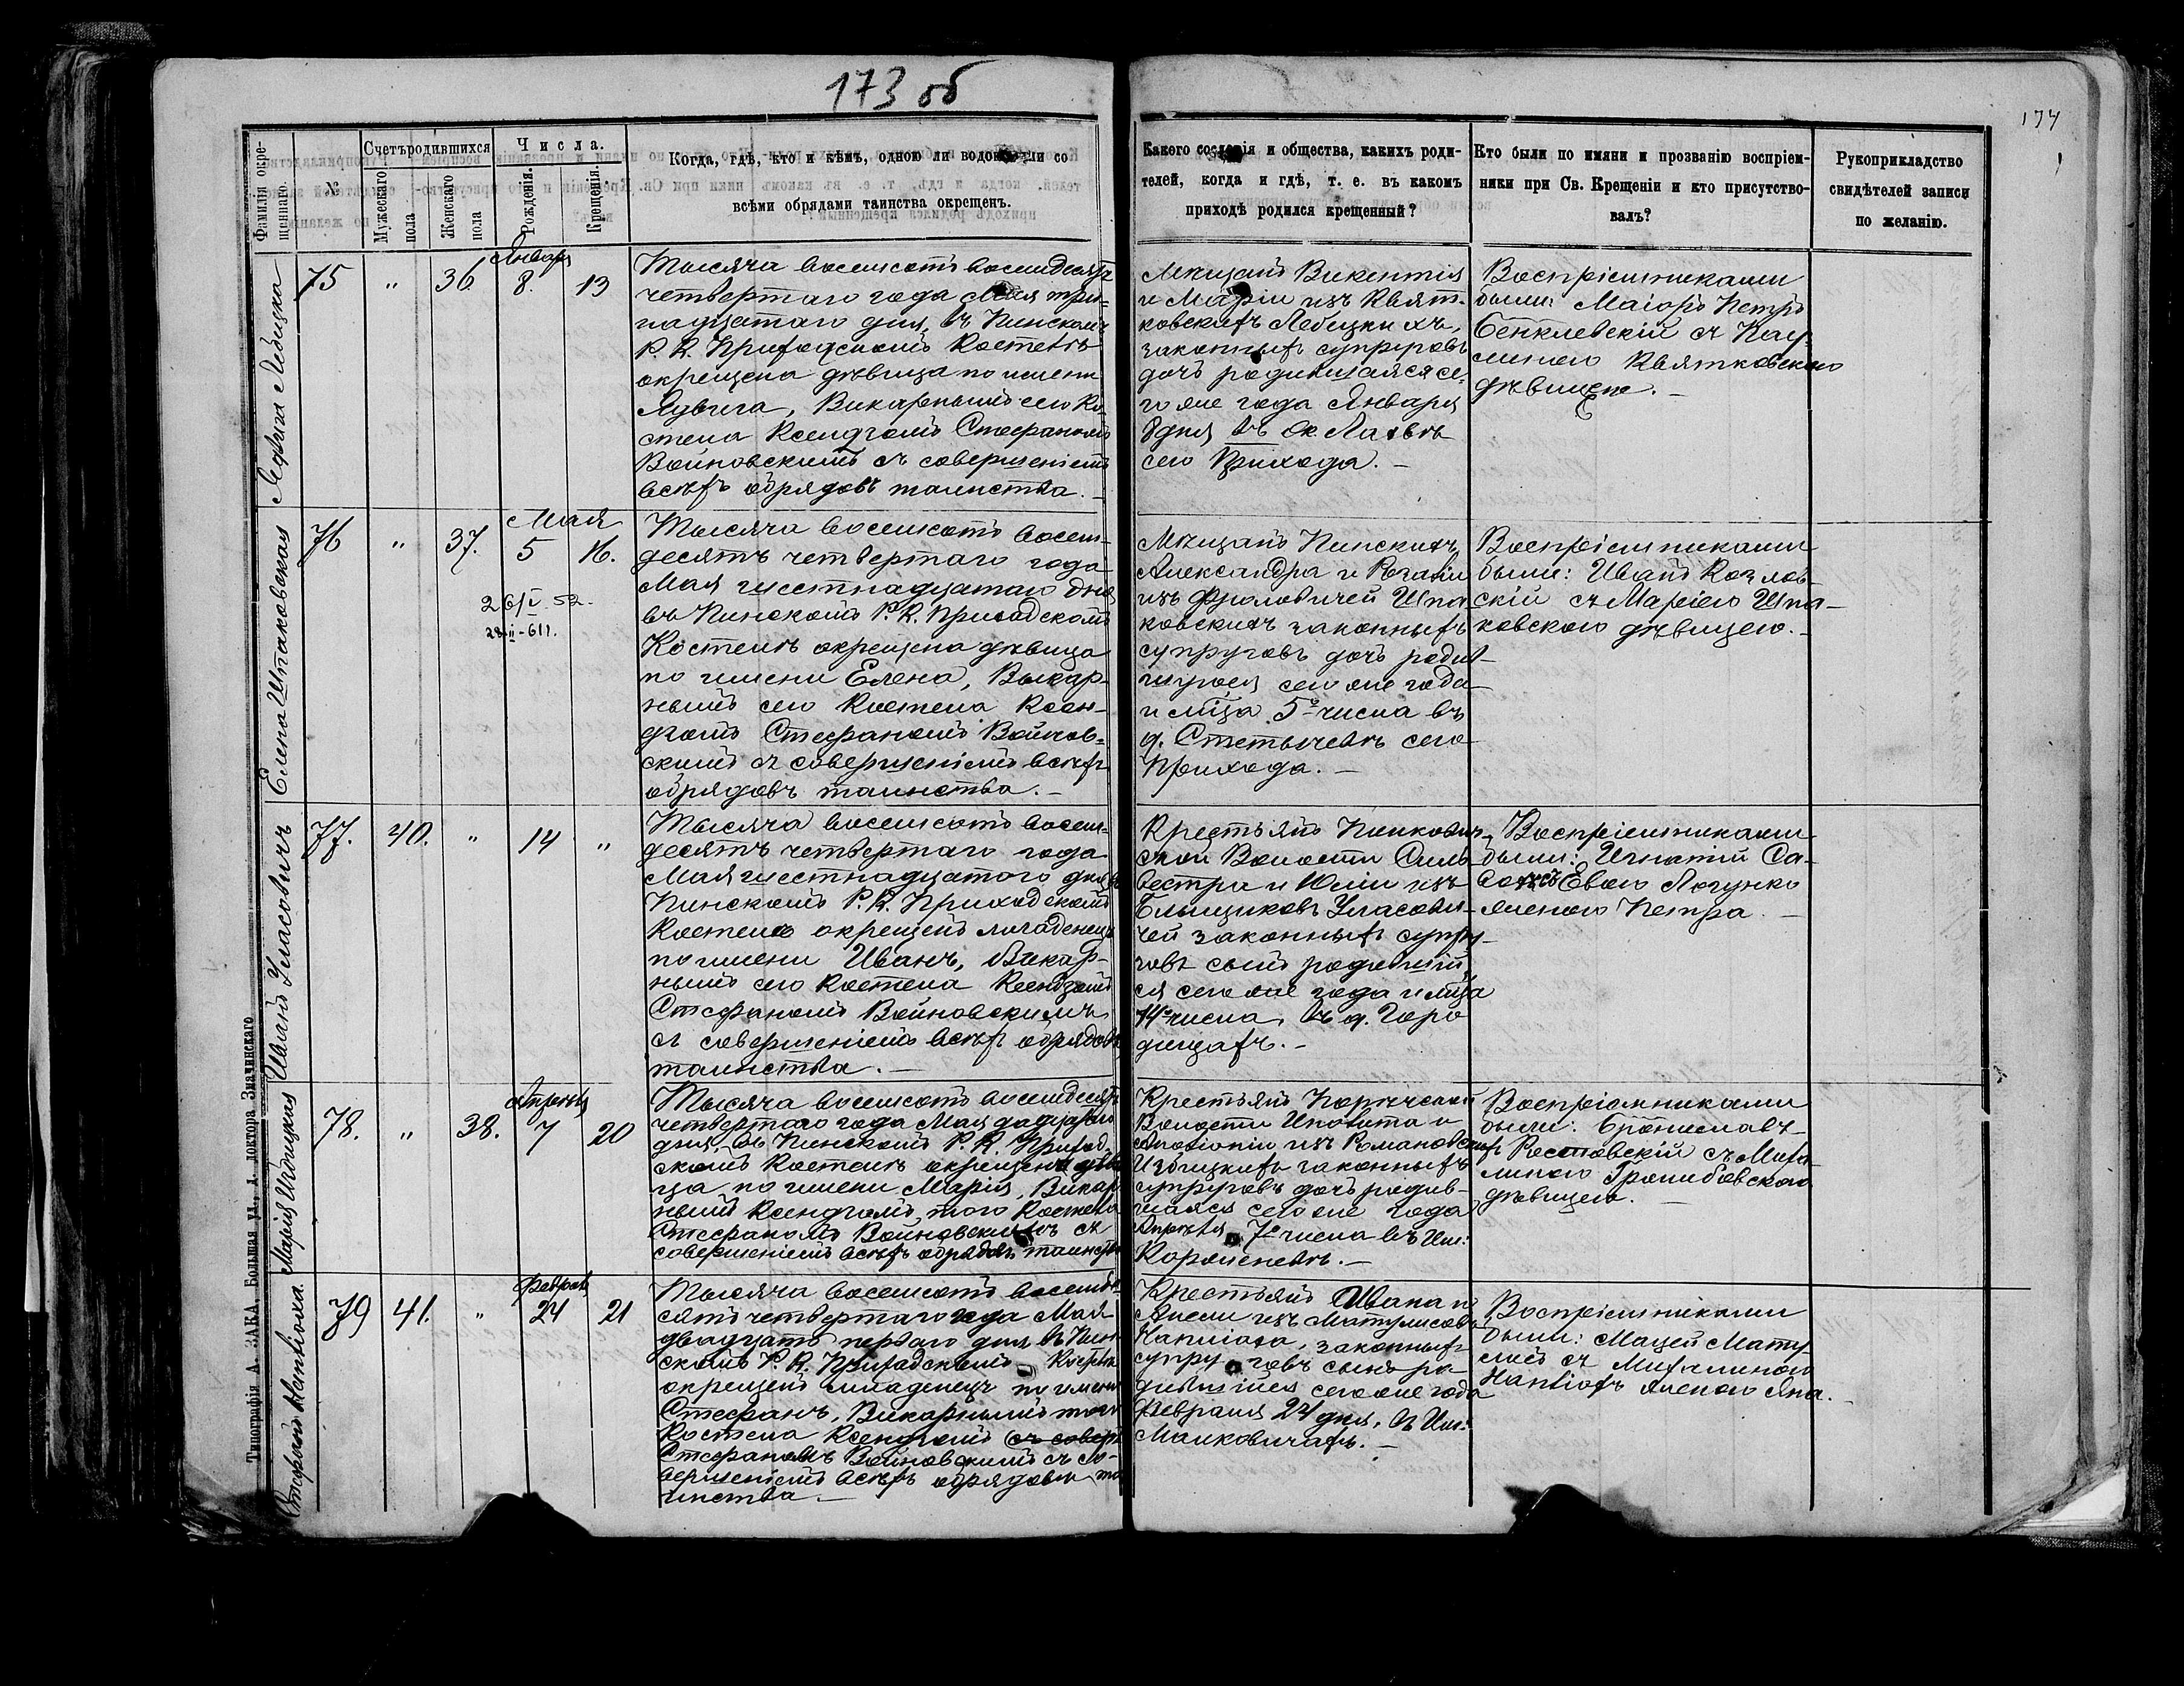 173 об
174
Фамилія окре-
щиннаго.
№
Счетъ родившихся
Мужескаго
пола
Женскаго
пола
Числа.
Рожденія.
Крещенія.
Когда, гдѣ, кто и кѣмъ, одною ли водою или со
всѣми обрядами таинства окрещенъ.
Какого сословія и общества, какихъ роди-
телей, когда и гдѣ, т. е. въ какомъ
приходѣ родился крещенный?
Кто были по имяни и прозванію воспріем-
ники при Св. Крещеніи и кто присутство-
валъ?
Рукоприкладство
свидѣтелей записи
по желанію.
Ядвига Лебицка
75
"
36
Января
8.
13
Тысяча восемсотъ восемдесятъ
четвертаго года Мая три-
надцатаго дня, въ Пинскомъ
Р. К. Приходскомъ Костелѣ
окрещена дѣвица по имени
Ядвига, Викарнымъ сего Ко-
стела Ксендзомъ Стефаномъ
Войновскимъ съ совершеніемъ
всѣхъ обрядовъ таинства. –
Мѣщанъ Викентія
и Маріи изъ Квят-
ковскихъ Лебицкихъ,
законныхъ супруговъ
дочь родившаяся се-
го же года Января
8 дня въ Ок.
сего Прихода. –
Воспріемниками
были: Маіоръ Петръ
съ Пау-
линою Квятковскою
дѣвицею. –
Елена Шпаковская
76
"
37.
Мая
5
16.
26/V 52.
28-II-611.
Тысяча восемсотъ восем-
десятъ четвертаго года
Мая шестнадцатаго дня
въ Пинскомъ Р. К. Приходскомъ
Костелѣ окрещена дѣвица
по имени Елена, Викар-
нымъ сего Костела Ксен-
дзомъ Стефаномъ Войнов-
скимъ съ совершеніемъ всѣхъ
обрядовъ таинства. –
Мѣщанъ Пинскихъ
Александра и Розаліи
изъ Фроловичей Шпа-
ковскихъ законныхъ
супруговъ дочь родив-
шуюся сего же года
и мѣца 5го числа въ
д. Стетычевѣ сего
Прихода. –
Воспріемниками
были: Иванъ Козлов-
скій съ Маріею Шпа-
ковскою дѣвицею. –
Иванъ Уласовичъ
77.
40.
"
14
"
Тысяча восемсотъ восем-
десятъ четвертаго года
Мая шестнадцатого дня въ
Пинскомъ Р. К. Приходскомъ
Костелѣ окрещенъ младенецъ
по имени Иванъ, Викар-
нымъ сего Костела Ксендзомъ
Стефаномъ Войновскимъ
съ совершеніемъ всѣхъ обрядовъ
таинства. –
Крестьянъ Пинкович-
ской Волости Силь-
вестра и Юліи изъ
Уласови-
чей законныхъ супру-
говъ сынъ родившій-
ся сего же года и мѣца
14го числа, въ д. Горо-
дищахъ. –
Воспріемниками
были: Игнатій
Евою
женою Петра. –
Марія Избицкая
78.
"
38.
Апрѣля
7
20
Тысяча восемсотъ восемдесятъ
четвертаго года Мая двадцатаго
дня, въ Пинскомъ Р. К. Приход-
скомъ Костелѣ окрещена дѣви-
ца по имени Марія, Викар-
нымъ Ксендзомъ того Костела
Стефаномъ Войновскимъ съ
совершеніемъ всѣхъ обрядовъ таинства
Крестьянъ Порѣчской
Волости Ипполита и
Антоніи изъ Романовскихъ
Избицкихъ законныхъ
супруговъ дочь родив-
шаяся сего же года
Апрѣля 7го числа въ Им:
Воспріемниками
были: Брониславъ
Ростовскій съ Миха-
линою
дѣвицею. –
Стефанъ
79
41.
"
Февраля
24
21
Тысяча восемсотъ восемьде-
сятъ четвертаго года Мая
двадцать перваго дня въ Пин-
скомъ Р. К. Приходскомъ Костелѣ
окрещенъ младенецъ по имени
Стефанъ, Викарнымъ того
Костела Ксендзомъ съ сове
Стефаномъ Войновскимъ съ со-
вершеніемъ всѣхъ обрядовъ та-
инства –
Крестьянъ Ивана и
изъ Матулисовъ
законныхъ
супруговъ сынъ ро-
дившійся сего же года
Февраля 24 дня, въ Им:
Малковичахъ. –
Воспріемниками
были: Мацей Мату-
съ Михалиною
женою Яна.
Типографія А. ЗАКА, Большая ул., д. доктора Значинскаго